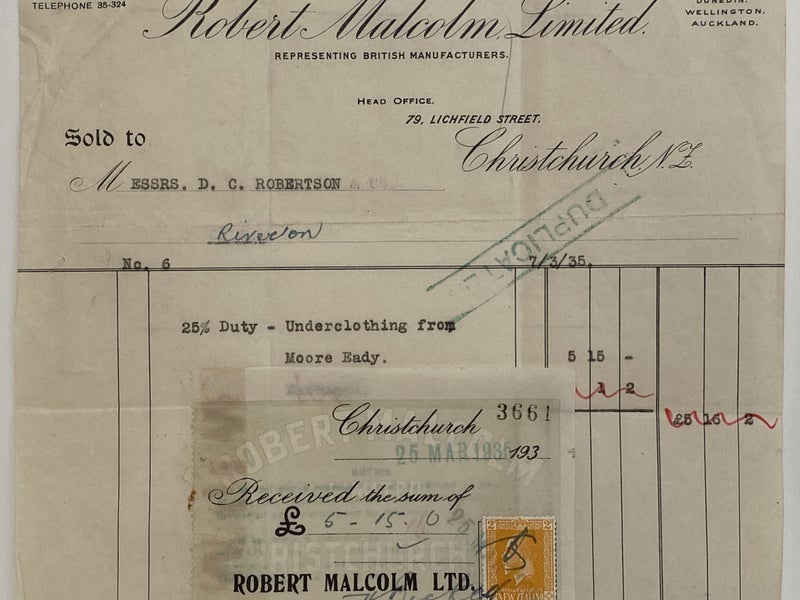 TELEPHONE 35-324
Robert Malcolm Limited.
DUNEDIN.
WELLINGTON.
AUCKLAND.
REPRESENTING BRITISH MANUFACTURERS.
HEAD OFFICE.
79, LICHFIELD STREET,
Christchurch, N.Z.
Sold to
MESSRS. D. C. ROBERTSON & CO.
Riverton
DUPLICATE
No. 6
7/3/35.
25% Duty - Underclothing from
Moore Eady. 5 15 -
1 2
£5 16 2
Christchurch 3661
25 MAR 1935 193
Received the sum of
£ 5 - 15 . 0
ROBERT MALCOLM LTD.
2 2
NEW ZEALAND